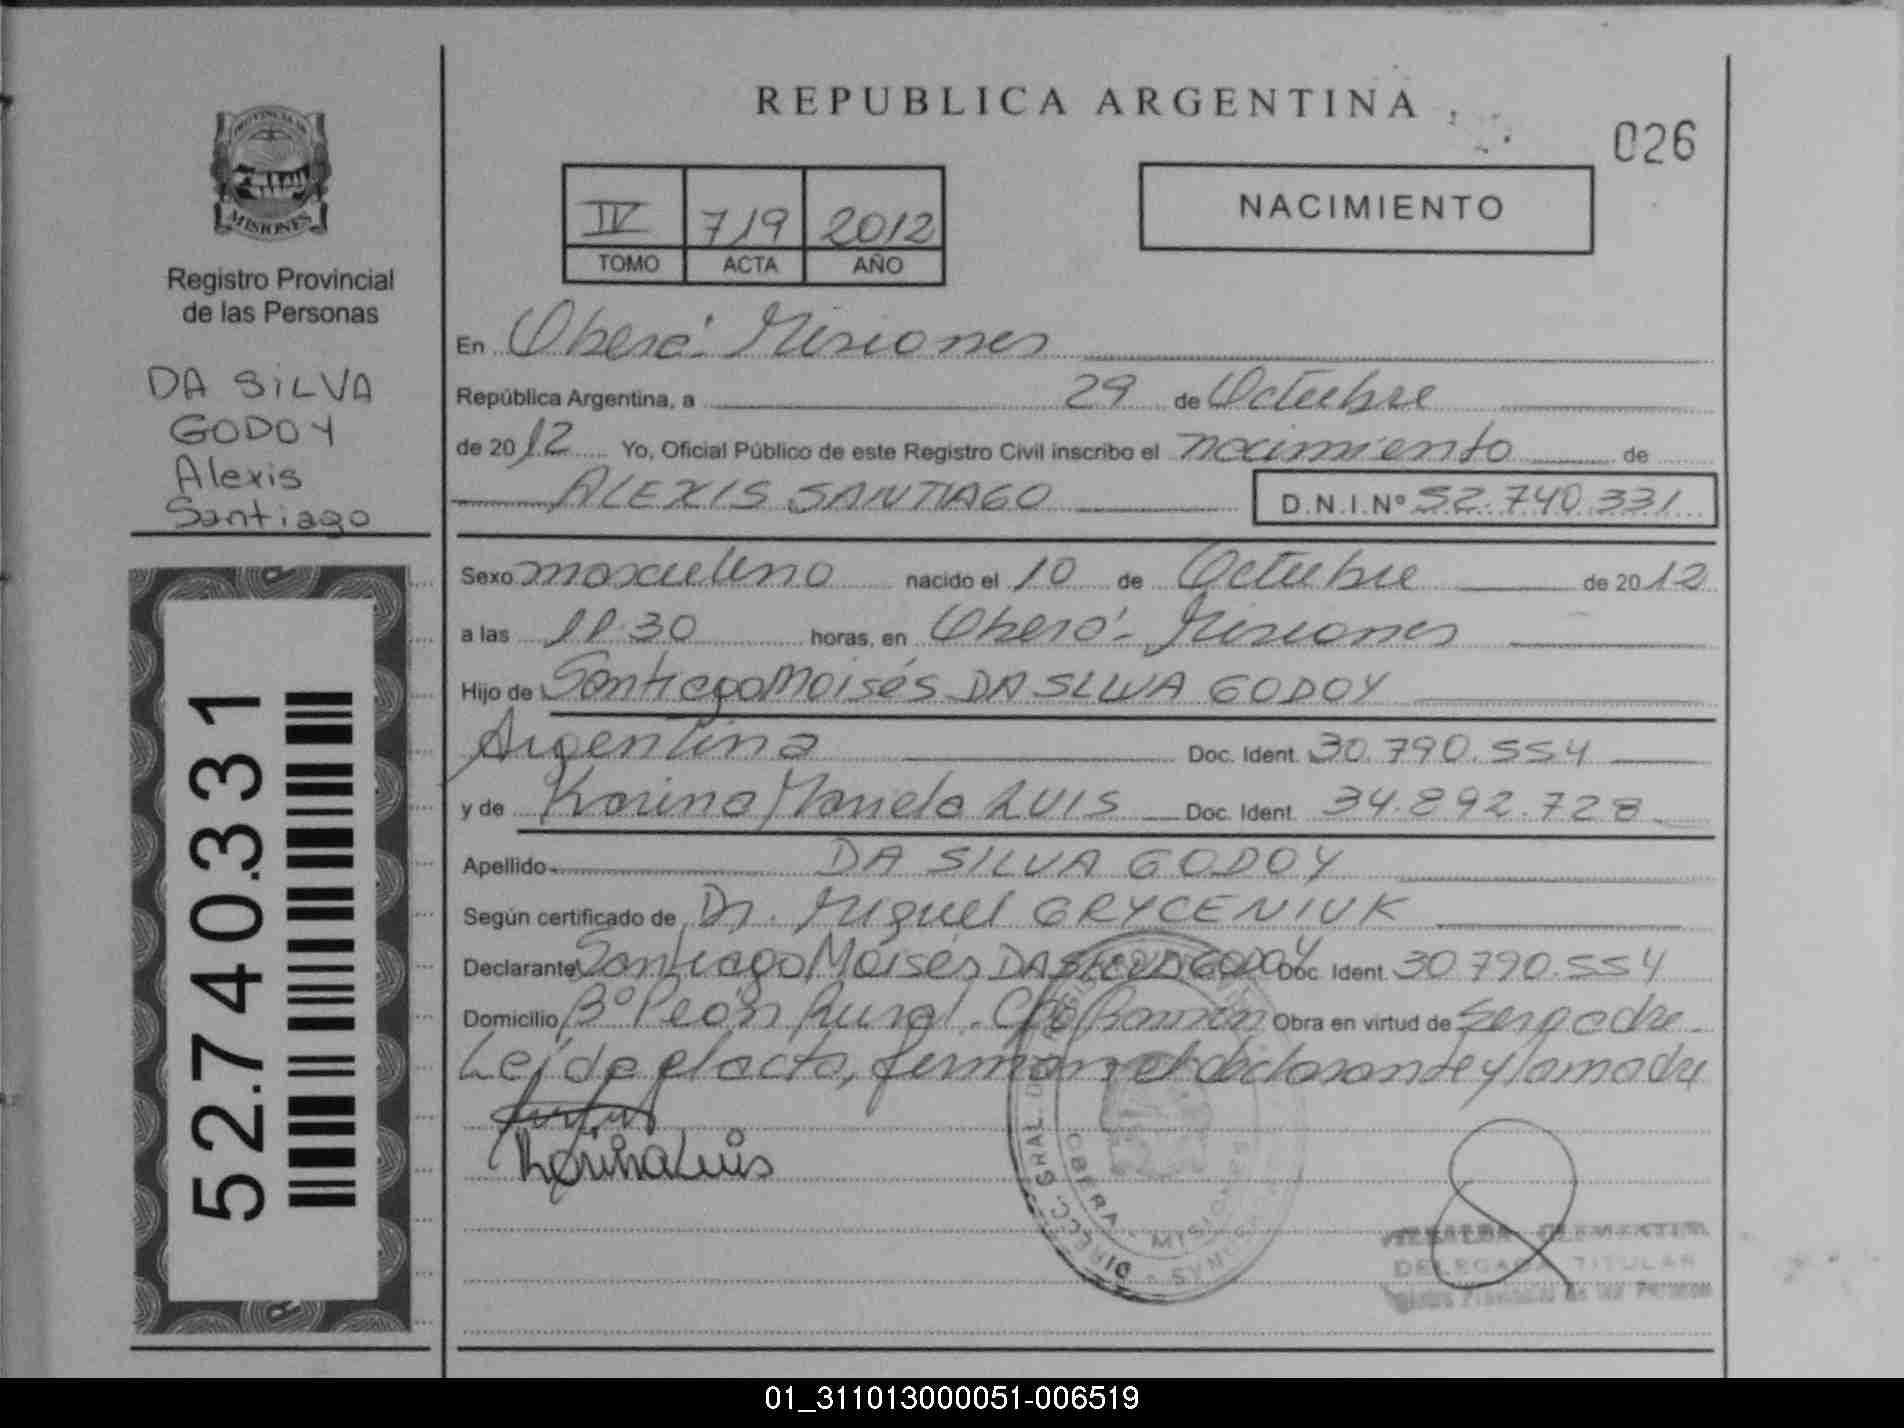 REPUBLICA ARGENTINA
026
PROVINCIA DE
MISIONES
Registro Provincial
de las Personas
DA SILVA
GODOY
Alexis
Santiago
52.740.331
IV 719 2012
TOMO ACTA AÑO
NACIMIENTO
En Oberá - Misiones
República Argentina, a 29 de Octubre
de 2012 Yo, Oficial Público de este Registro Civil inscribo el nacimiento de
ALEXIS SANTIAGO D.N.I.Nº 52.740.331
Sexo masculino nacido el 10 de Octubre de 2012
a las 11.30 horas, en Oberá - Misiones
Hijo de Santiago Moisés DA SILVA GODOY
Argentina Doc. Ident. 30.790.554
y de Karina Mariela LUIS Doc. Ident. 34.892.728
Apellido DA SILVA GODOY
Según certificado de Dr. Miguel GRYCENIUK
Declarante Santiago Moisés DA SILVA GODOY Doc. Ident. 30.790.554
Domicilio Bº Peón Rural - Cpo Ramón Obra en virtud de Ser padre -
Leída el acta, firman el declarante y la madre
Karina Luis
OBERA - MISIONES
CLEMENTINA
DELEGADA TITULAR
Registro Provincial de las Personas
01_311013000051-006519